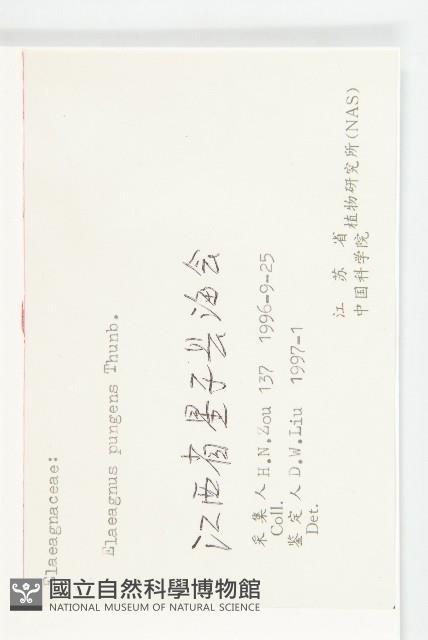 Elaeagnaceae:
Elaeagnus pungens Thunb.
江西省星子县海会
采集人 H.N.Zou 137 1996-9-25
Coll.
鉴定人 D.W.Liu 1997-1
Det.
江苏省
中国科学院 植物研究所(NAS)
國立自然科學博物館
NATIONAL MUSEUM OF NATURAL SCIENCE